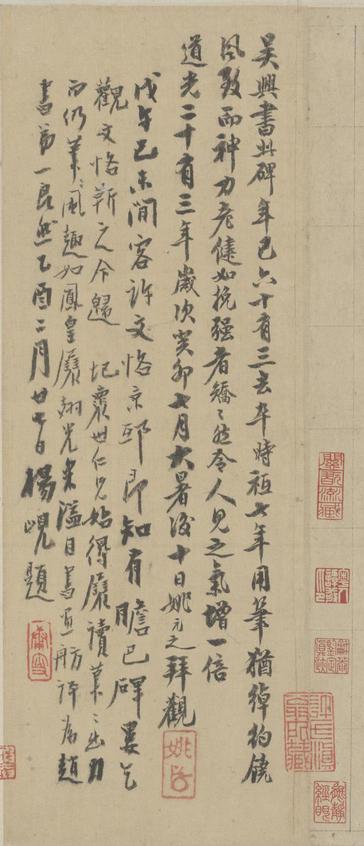 吳興書此碑年已六十有三去卒時祗七年用筆猶綽約饒
風致而神力老健如挽强者矯矯然令人見之氣增一倍
道光二十有三年歲次癸卯七月大暑後十日姚元之拜觀
戊午己未間客許文恪京邸即知有膽巴碑屢乞
觀文恪靳之今歸 圮褱世仁兄始得展讀筆筆出力
而仍筆筆風趣如鳳皇展翅光采溢目書畫舫評為趙
書第一良然乙酉二月廿七日楊峴題